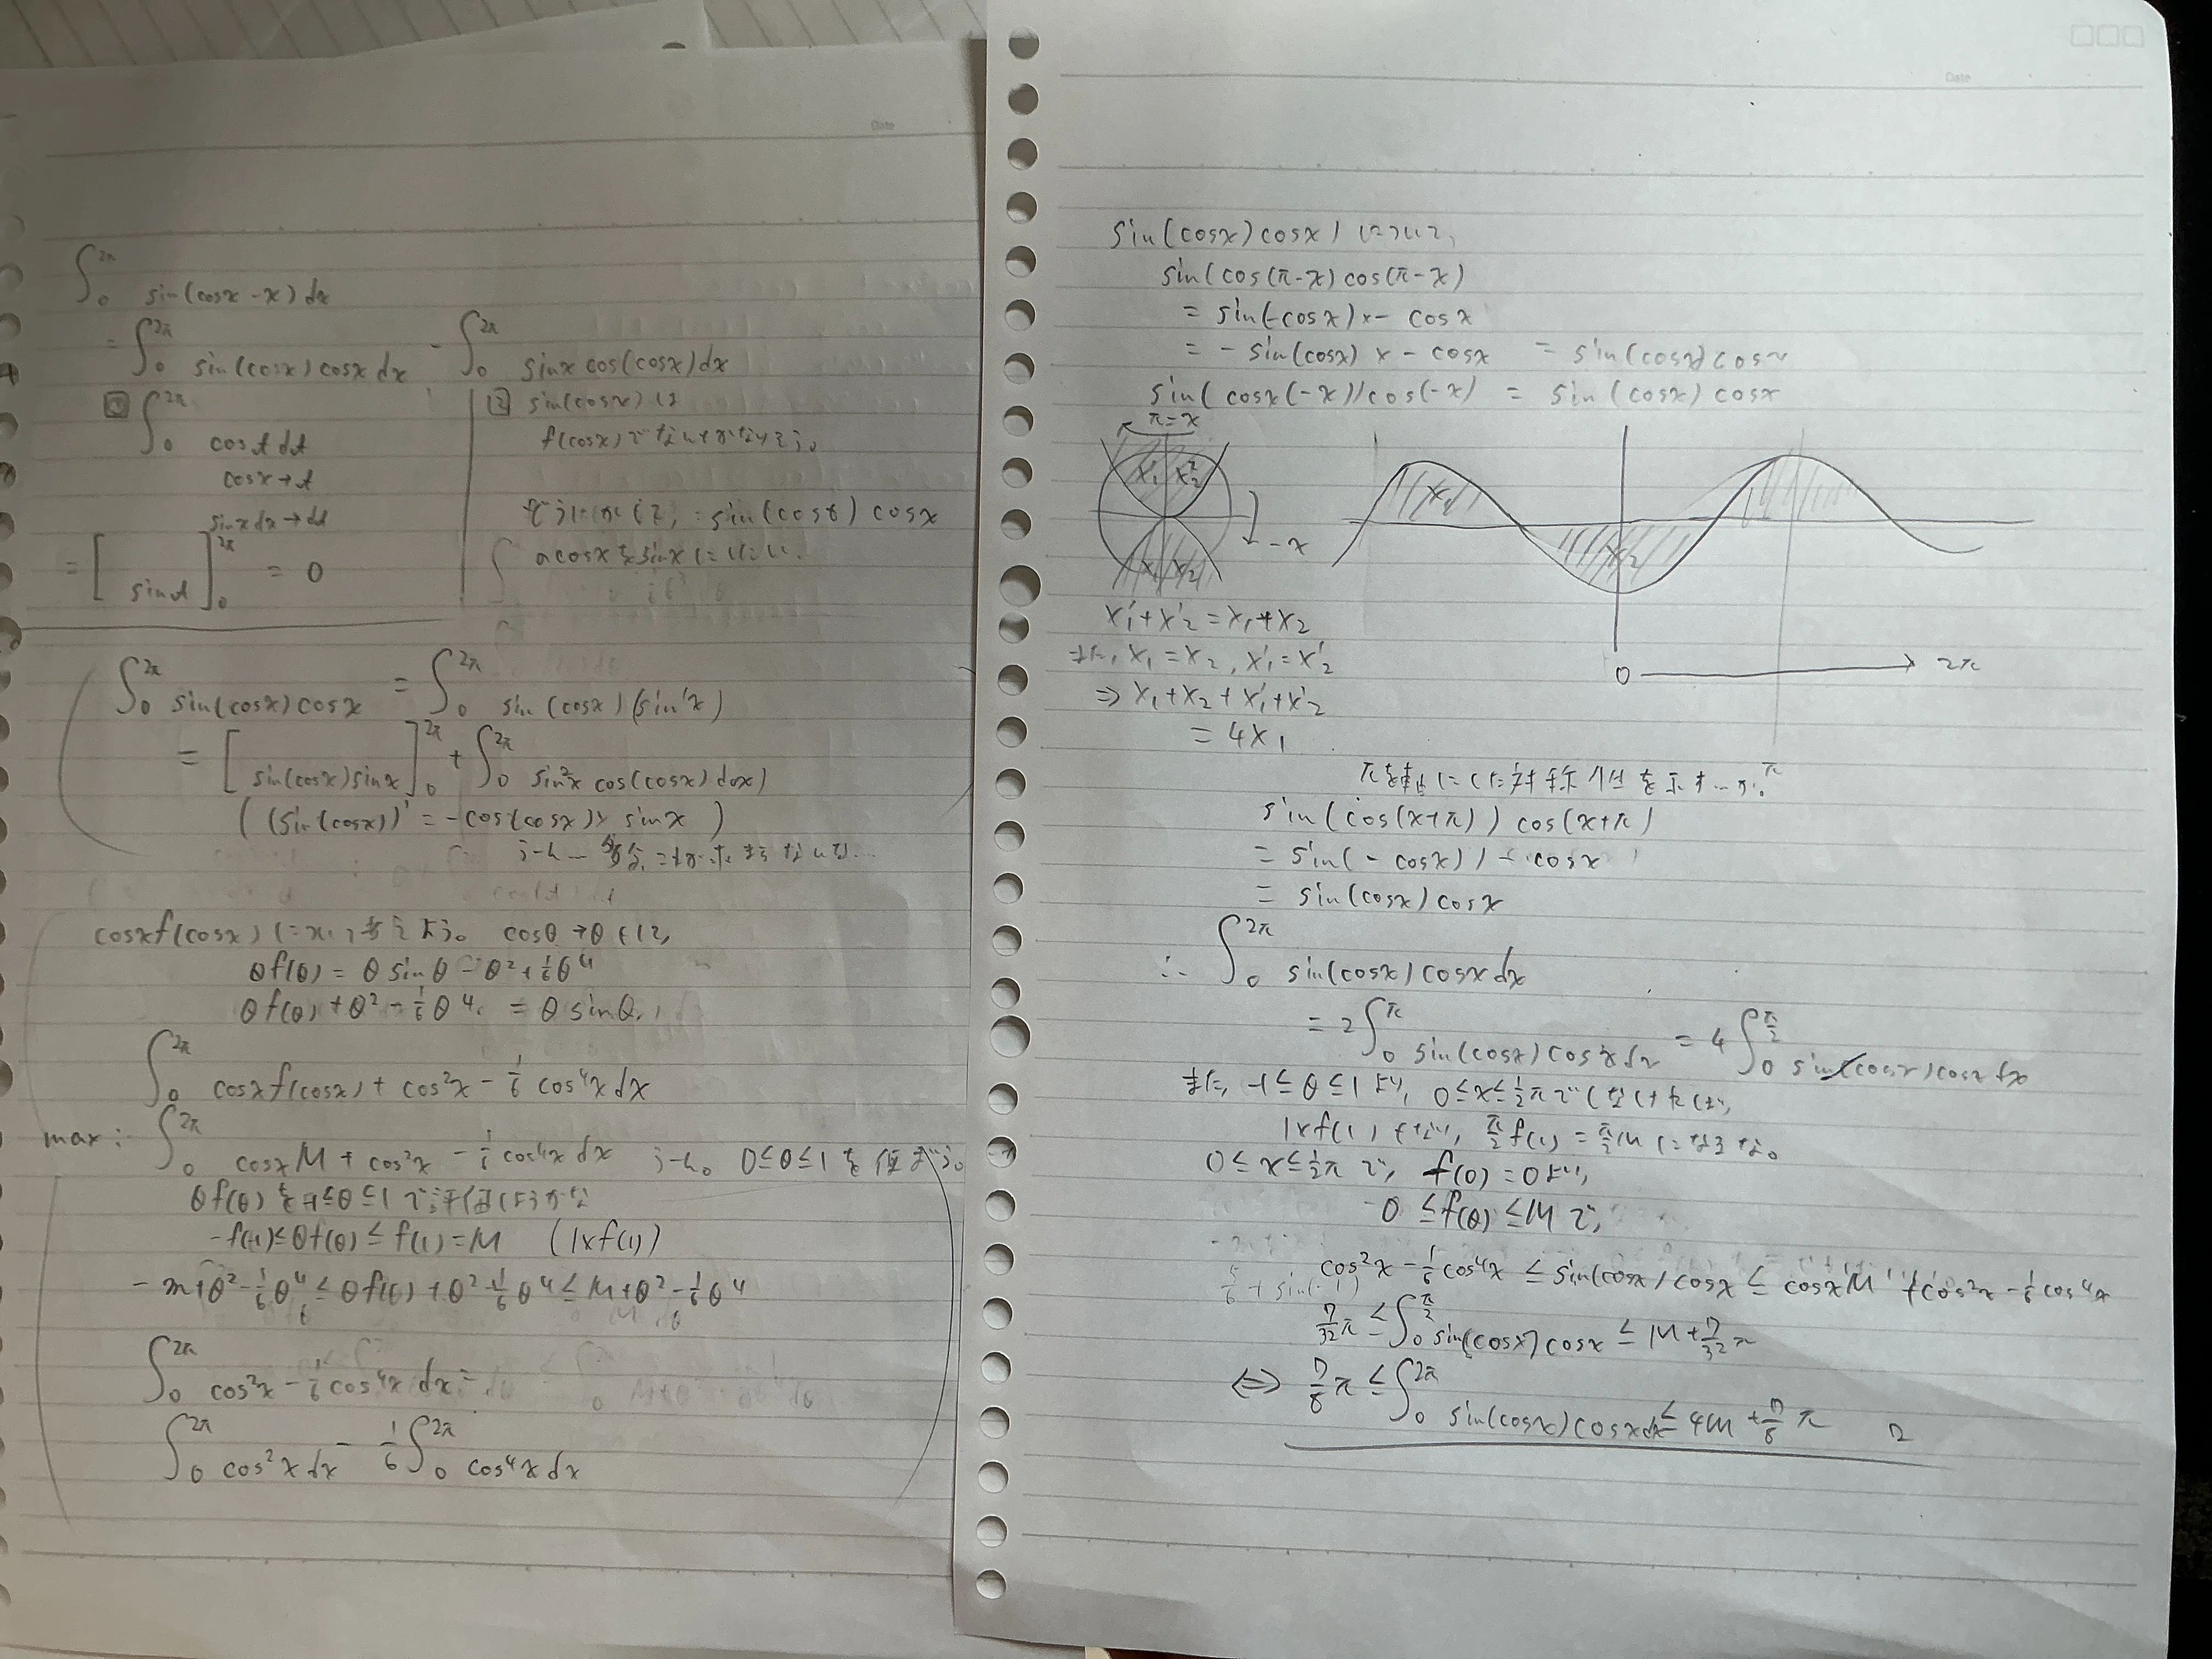 Date
∫₀^{2π} sin(cosx - x) dx
= ∫₀^{2π} sin(cosx) cosx dx - ∫₀^{2π} sinx cos(cosx) dx
∫₀^{2π} cost dt
cosx→t
sinx dx→dt
= [sint]₀^{2π} = 0
② sin(cosx)は
f(cosx)で
= sin(cosx) cosx
cosxをsinxにしたい
∫₀^{2π} sin(cosx) cosx = ∫₀^{2π} sin(cosx)(sin'x)
= [sin(cosx) sinx]₀^{2π} + ∫₀^{2π} sin²x cos(cosx) dx)
((sin(cosx))' = -cos(cosx) × sinx)
うーん
cosxf(cosx) について考えよう。 cosθ→θとして,
θf(θ) = θsinθ - θ² + 1/6 θ⁴
θf(θ) + θ² - 1/6 θ⁴ = θsinθ
∫₀^{2π} cosxf(cosx) + cos²x - 1/6 cos⁴x dx
max: ∫₀^{2π} cosxM + cos²x - 1/6 cos⁴x dx うーん。 0≤θ≤1を
θf(θ)を-1≤θ≤1で評価しようかな
-f(-1)≤θf(θ)≤f(1)=M (1×f(1))
-m+θ²-1/6θ⁴ ≤ θf(θ)+θ²-1/6θ⁴ ≤ M+θ²-1/6θ⁴
∫₀^{2π} cos²x - 1/6 cos⁴x dx =
∫₀^{2π} cos²x dx - 1/6 ∫₀^{2π} cos⁴x dx
Date
sin(cosx) cosx) について,
sin(cos(π-x) cos(π-x)
= sin(-cosx) × - cosx
= - sin(cosx) × - cosx = sin(cosx) cosx
sin(cosx(-x)) cos(-x) = sin(cosx) cosx
π=x
x₁' x₂'
-x
x₁ x₂
x₁
x₂
0 → 2π
x₁'+x₂' = x₁+x₂
また, x₁ = x₂, x₁' = x₂'
⇒ x₁+x₂+x₁'+x₂'
= 4x₁
πを軸にした対称性を示すが,
sin(cos(x+π)) cos(x+π)
= sin(-cosx) × - cosx
= sin(cosx) cosx
∴ ∫₀^{2π} sin(cosx) cosx dx
= 2∫₀^{π} sin(cosx) cosx dx = 4∫₀^{π/2} sin(cosx) cosx dx
また, -1≤θ≤1より, 0≤x≤1/2πでしなければ,
1×f(1)となり, π/2 f(1) = π/2 Mになるな。
0≤x≤1/2πで, f(0)=0より,
0≤f(θ)≤Mで,
cos²x - 1/6 cos⁴x ≤ sin(cosx) cosx ≤ cosxM + cos²x - 1/6 cos⁴x
7/32 π ≤ ∫₀^{π/2} sin(cosx) cosx ≤ M + 7/32 π
⇔ 7/8 π ≤ ∫₀^{2π} sin(cosx) cosx dx ≤ 4M + 7/8 π